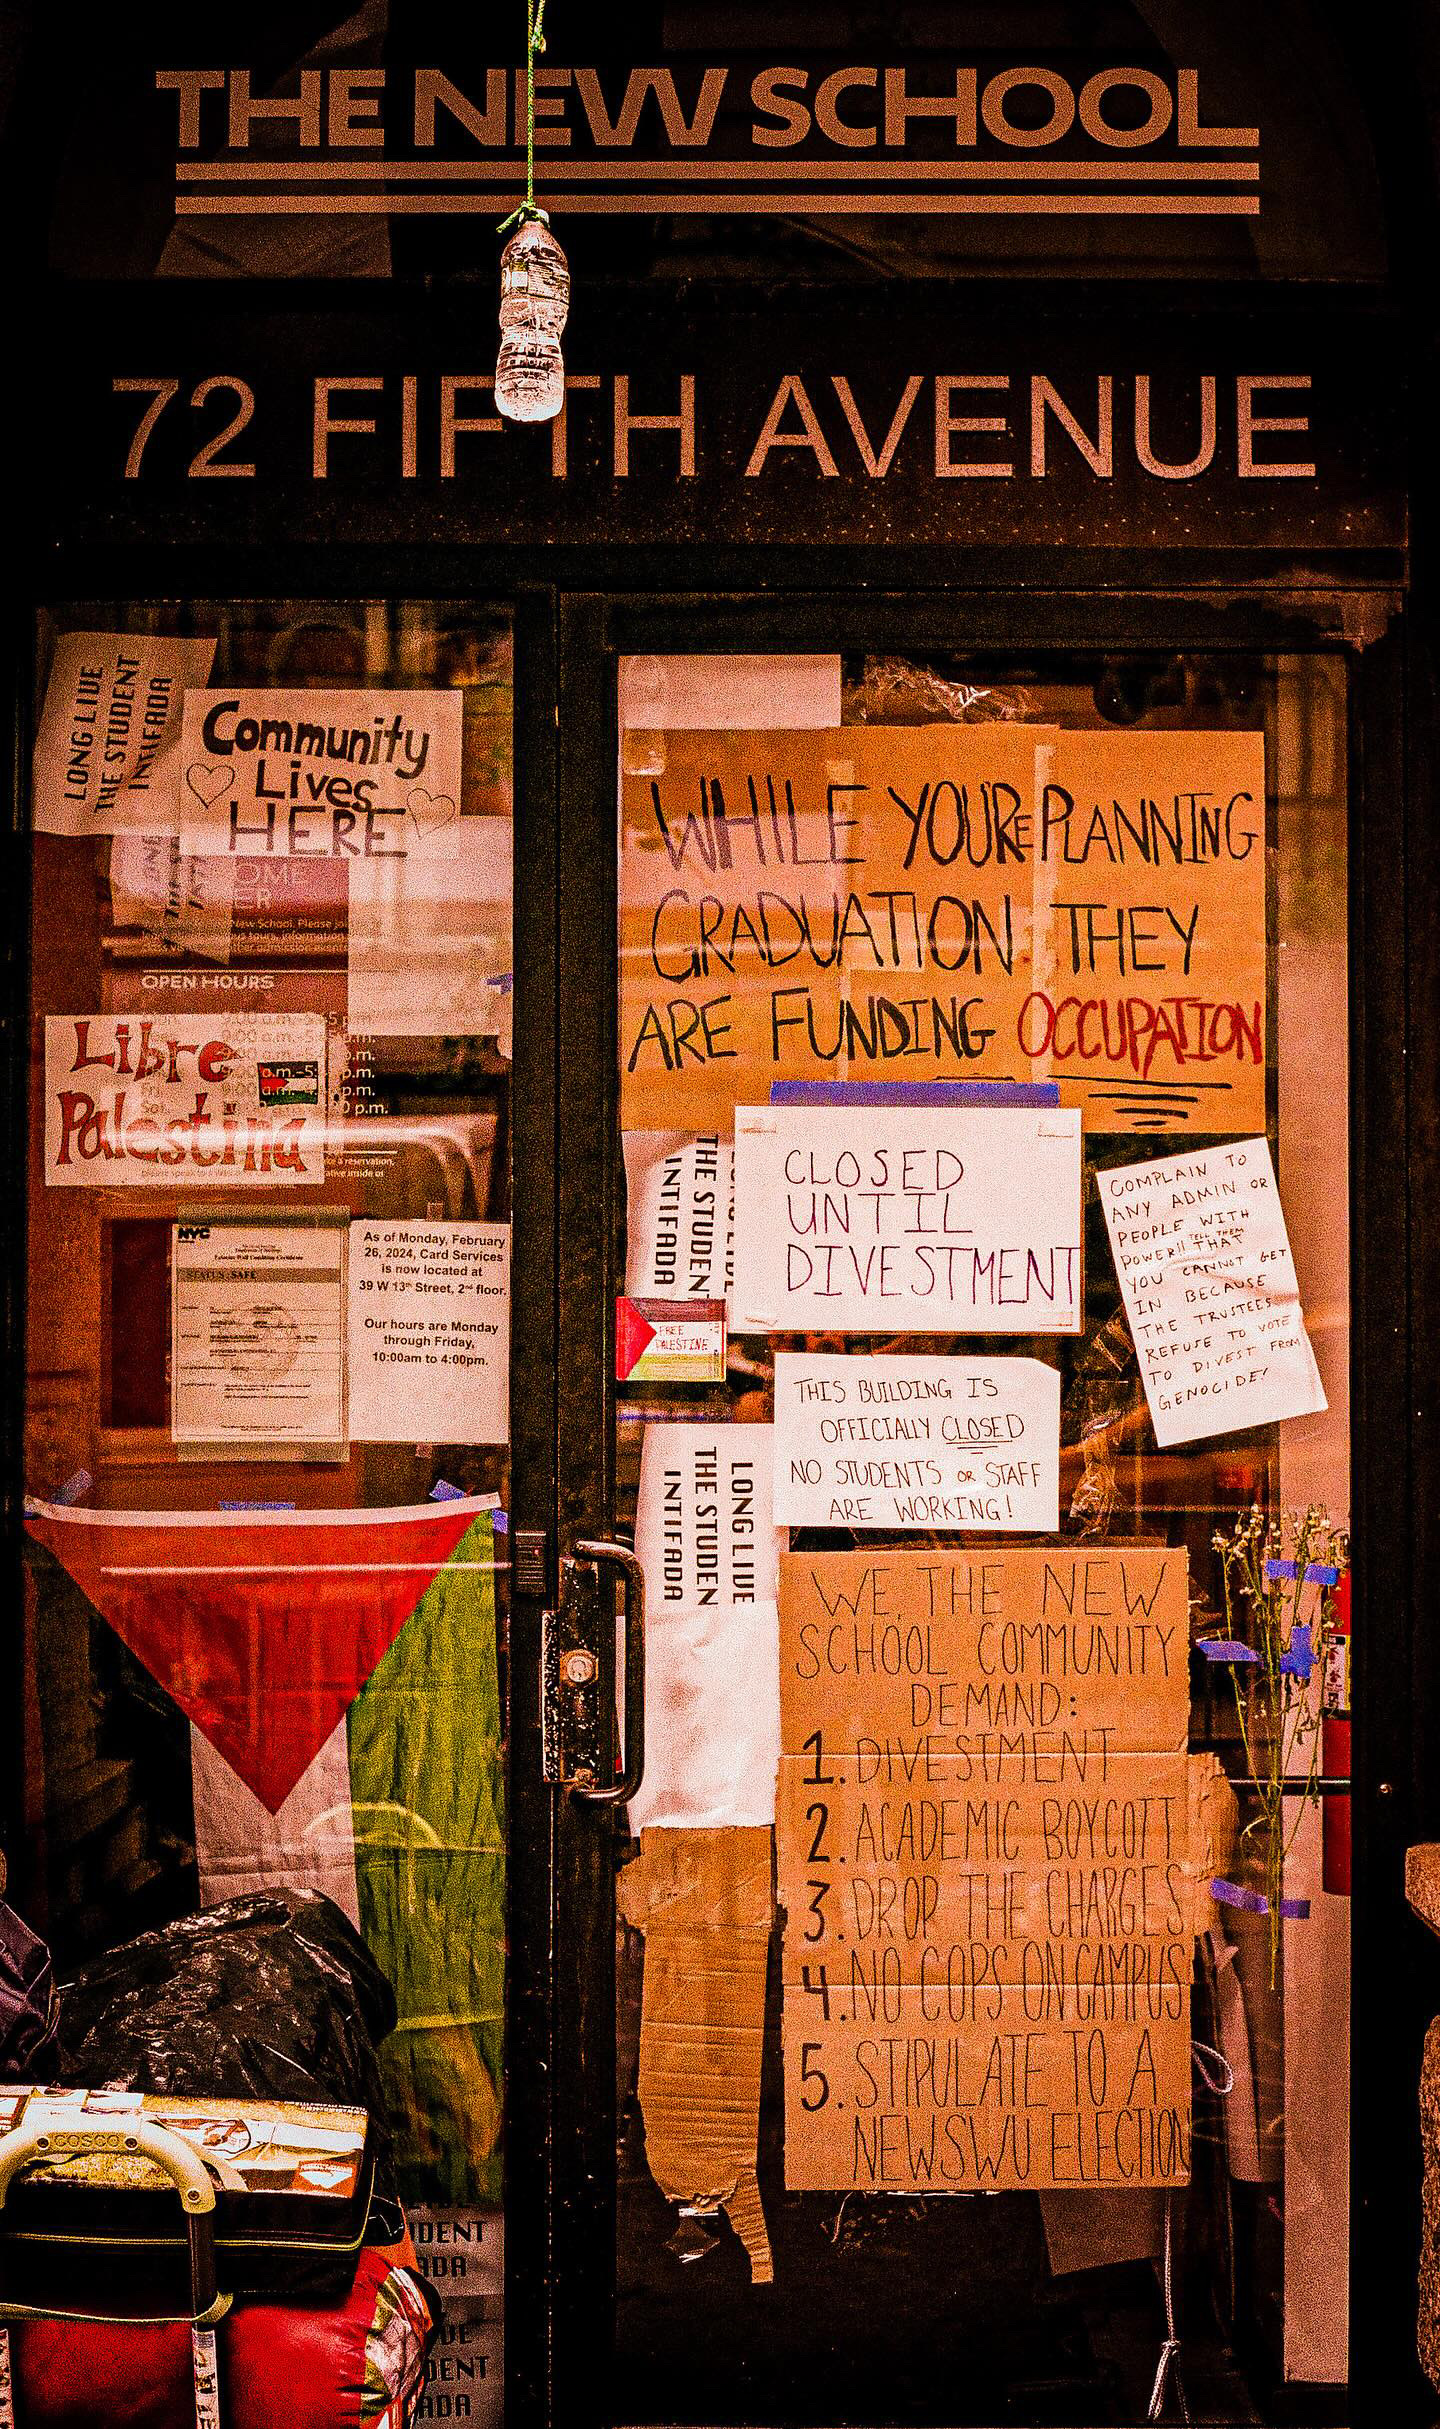 THE NEW SCHOOL
72 FIFTH AVENUE
LONG LIVE
THE STUDENT
INTIFADA
Community
Lives
HERE
OPEN HOURS
Libre
Palestina
NYC
STATUS: SAFE
As of Monday, February
26, 2024, Card Services
is now located at
39 W 13th Street, 2nd floor.
Our hours are Monday
through Friday,
10:00am to 4:00pm.
WHILE YOU'RE PLANNING
GRADUATION THEY
ARE FUNDING OCCUPATION
THE STUDENT
INTIFADA
CLOSED
UNTIL
DIVESTMENT
COMPLAIN TO
ANY ADMIN OR
PEOPLE WITH
POWER!! TELL THEM THAT
YOU CANNOT GET
IN BECAUSE
THE TRUSTEES
REFUSE TO VOTE
TO DIVEST FROM
GENOCIDE!
FREE
PALESTINE
THIS BUILDING IS
OFFICIALLY CLOSED
NO STUDENTS OR STAFF
ARE WORKING!
LONG LIVE
THE STUDEN
INTIFADA
WE, THE NEW
SCHOOL COMMUNITY
DEMAND:
1. DIVESTMENT
2. ACADEMIC BOYCOTT
3. DROP THE CHARGES
4. NO COPS ON CAMPUS
5. STIPULATE TO A
NEWSWU ELECTION
COSCO
DENT
ADA
DENT
ADA